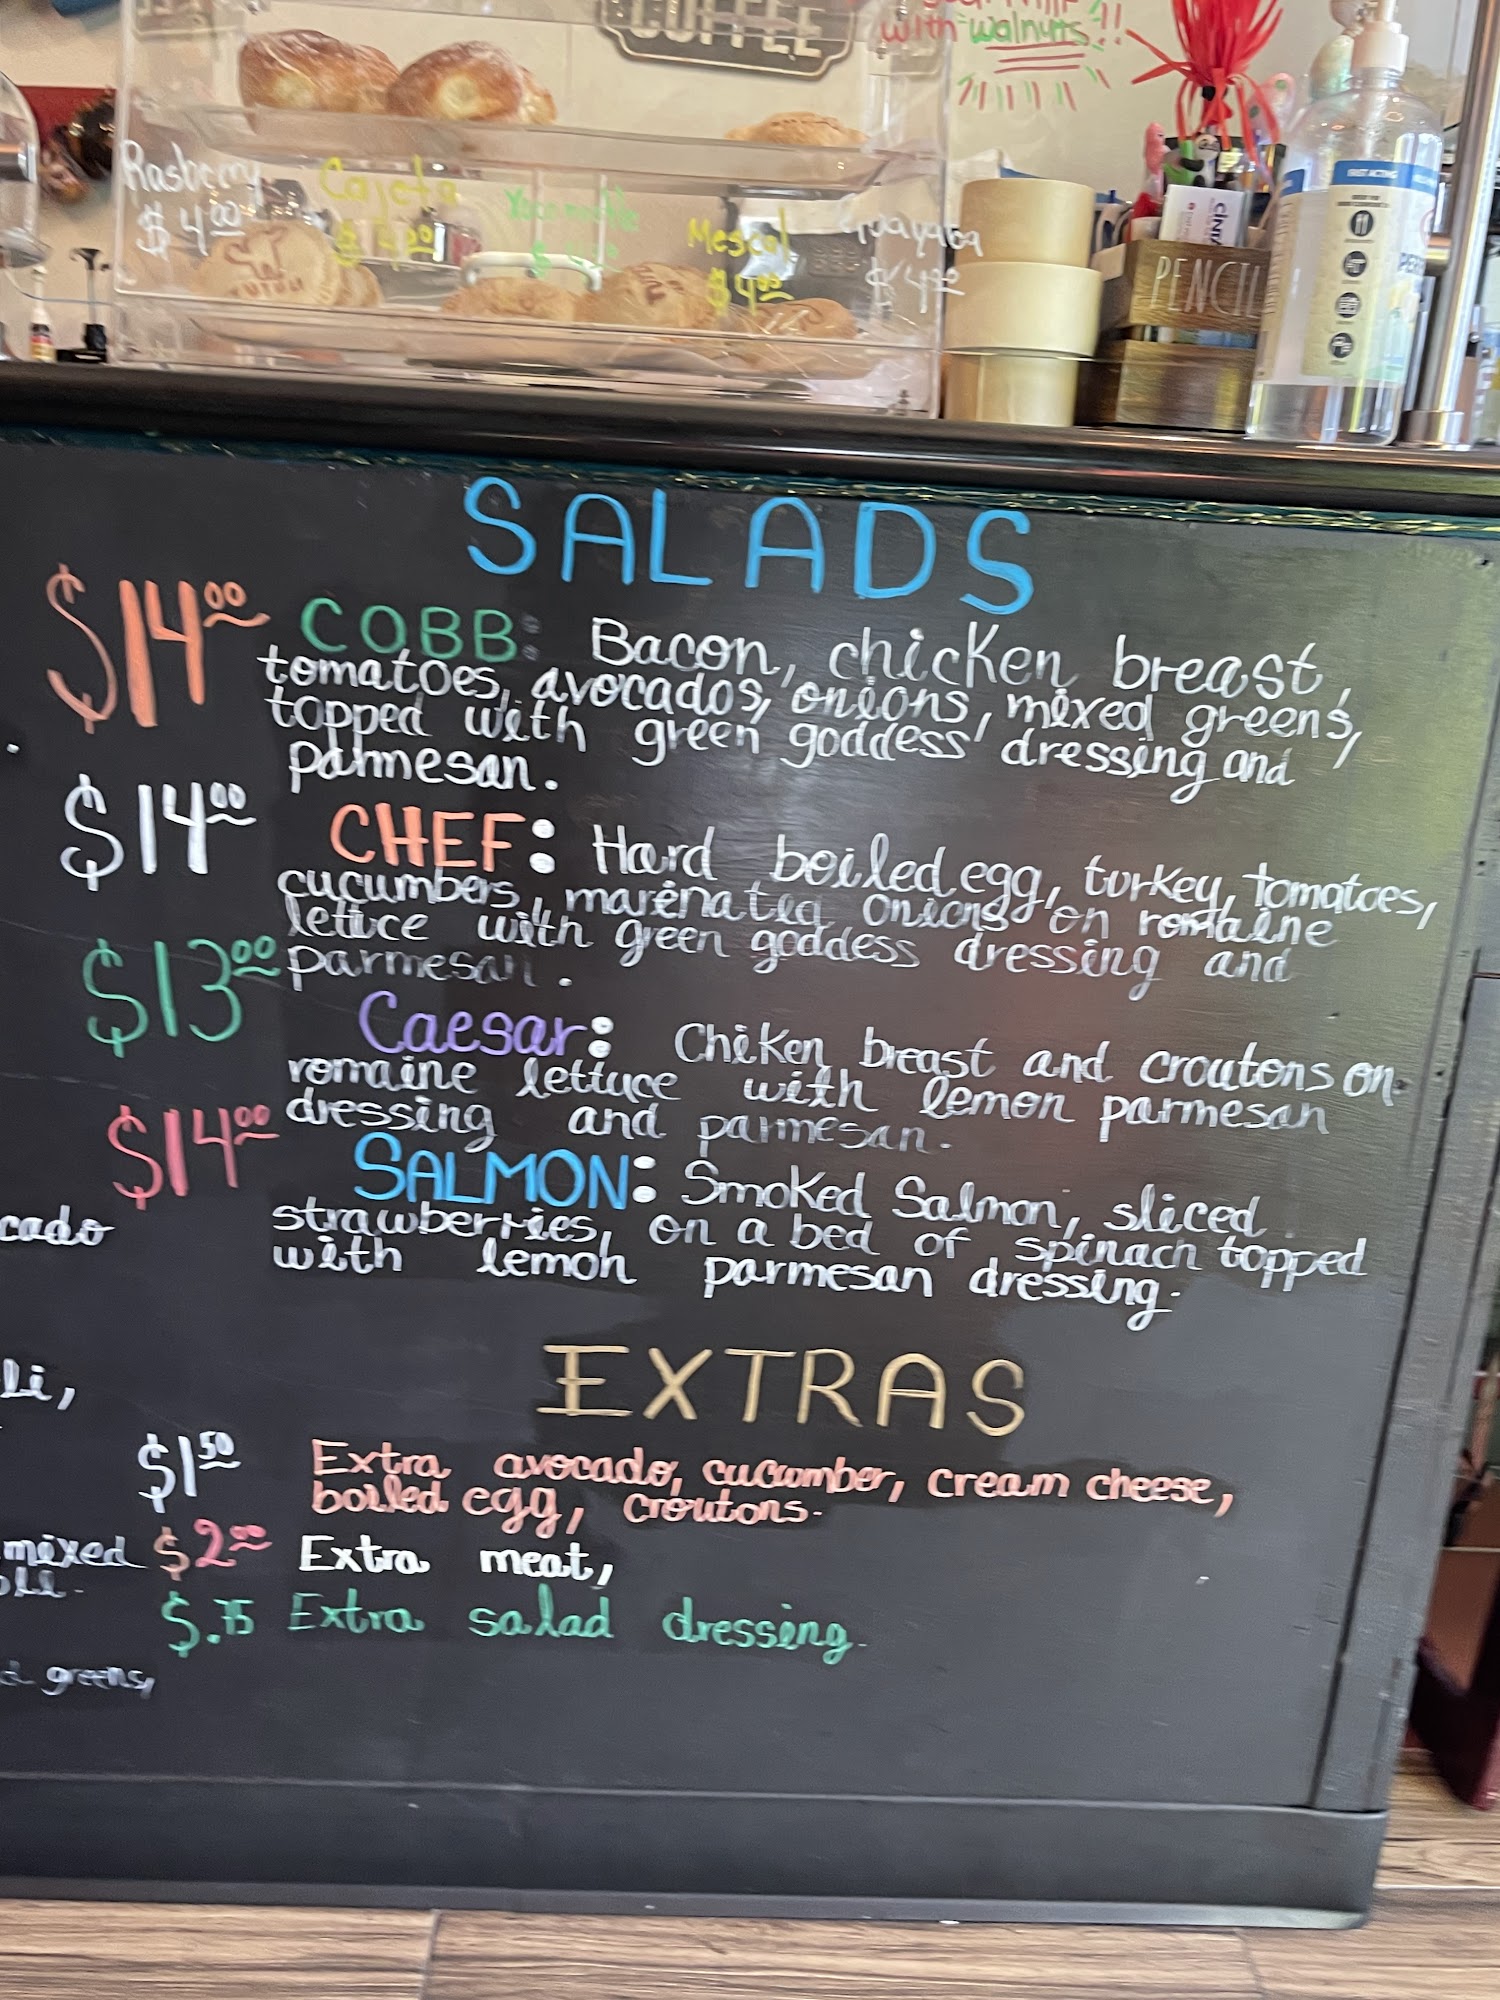 COFFEE
with walnuts!!
Rasberry
$4.00
Cajeta
Mescal
$4.00
$4.00
PENCIL
FAST ACTING
SALADS
$14.00 COBB: Bacon, chicken breast,
tomatoes, avocados, onions, mixed greens,
topped with green goddess dressing and
parmesan.
$14.00 CHEF: Hard boiled egg, turkey, tomatoes,
cucumbers, marinated onions on romaine
lettuce with green goddess dressing and
parmesan.
$13.00 Caesar: Chiken breast and croutons on
romaine lettuce with lemon parmesan
dressing and parmesan.
$14.00 SALMON: Smoked Salmon, sliced
strawberries, on a bed of spinach topped
with lemon parmesan dressing.
cado
li,
mixed
greens,
EXTRAS
$1.50 Extra avocado, cucumber, cream cheese,
boiled egg, croutons.
$2.00 Extra meat,
$.75 Extra salad dressing.